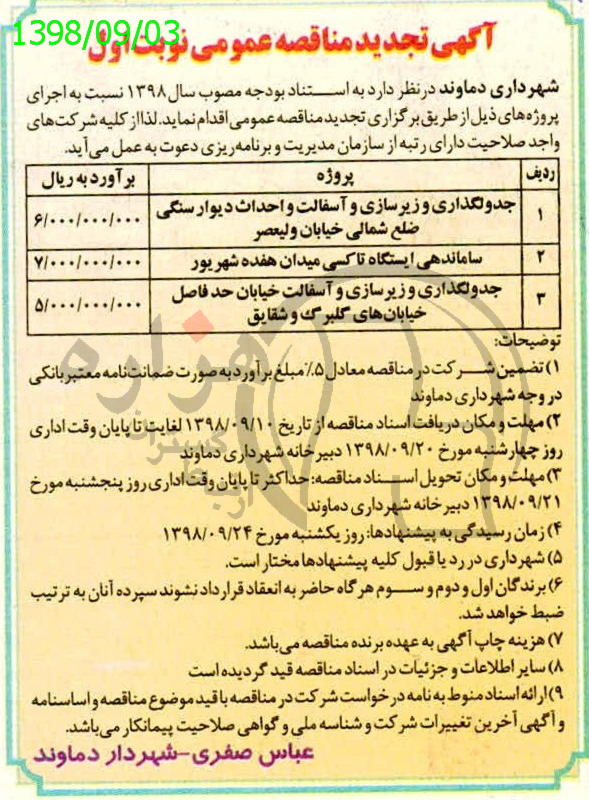 1398/09/03
آگهی تجدید مناقصه عمومی نوبت اول
شهرداری دماوند در نظر دارد به استناد بودجه مصوب سال ۱۳۹۸ نسبت به اجرای
پروژه‌های ذیل از طریق برگزاری تجدید مناقصه عمومی اقدام نماید. لذا از کلیه شرکت‌های
واجد صلاحیت دارای رتبه از سازمان مدیریت و برنامه‌ریزی دعوت به عمل می‌آید.
ردیف پروژه برآورد به ریال
۱ جدولگذاری و زیرسازی و آسفالت و احداث دیوار سنگی ضلع شمالی خیابان ولیعصر ۶/۰۰۰/۰۰۰/۰۰۰
۲ ساماندهی ایستگاه تاکسی میدان هفده شهریور ۷/۰۰۰/۰۰۰/۰۰۰
۳ جدولگذاری و زیرسازی و آسفالت خیابان حد فاصل خیابان‌های گلبرگ و شقایق ۵/۰۰۰/۰۰۰/۰۰۰
توضیحات:
۱) تضمین شرکت در مناقصه معادل ۵٪ مبلغ برآورد به صورت ضمانت‌نامه معتبر بانکی
در وجه شهرداری دماوند
۲) مهلت و مکان دریافت اسناد مناقصه از تاریخ ۱۳۹۸/۰۹/۱۰ لغایت تا پایان وقت اداری
روز چهارشنبه مورخ ۱۳۹۸/۰۹/۲۰ دبیرخانه شهرداری دماوند
۳) مهلت و مکان تحویل اسناد مناقصه: حداکثر تا پایان وقت اداری روز پنجشنبه مورخ
۱۳۹۸/۰۹/۲۱ دبیرخانه شهرداری دماوند
۴) زمان رسیدگی به پیشنهادها: روز یکشنبه مورخ ۱۳۹۸/۰۹/۲۴
۵) شهرداری در رد یا قبول کلیه پیشنهادها مختار است.
۶) برندگان اول و دوم و سوم هرگاه حاضر به انعقاد قرارداد نشوند سپرده آنان به ترتیب
ضبط خواهد شد.
۷) هزینه چاپ آگهی به عهده برنده مناقصه می‌باشد.
۸) سایر اطلاعات و جزئیات در اسناد مناقصه قید گردیده است
۹) ارائه اسناد منوط به نامه درخواست شرکت در مناقصه با قید موضوع مناقصه و اساسنامه
و آگهی آخرین تغییرات شرکت و شناسه ملی و گواهی صلاحیت پیمانکار می‌باشد.
عباس صفری-شهردار دماوند
هزاره